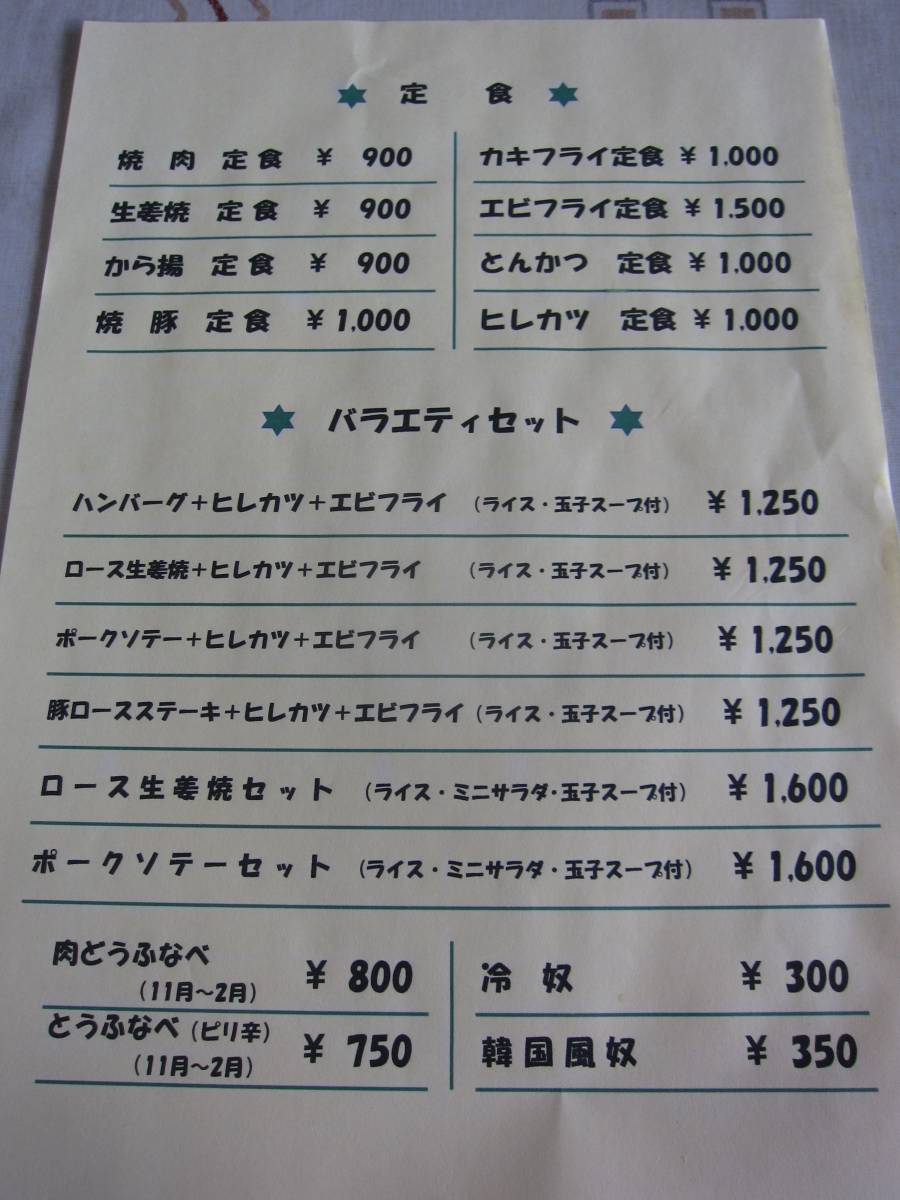 定 食
焼 肉 定 食 ¥ 900
生姜焼 定 食 ¥ 900
から揚 定 食 ¥ 900
焼 豚 定 食 ¥ 1,000
カキフライ定食 ¥ 1,000
エビフライ定食 ¥ 1,500
とんかつ 定食 ¥ 1,000
ヒレカツ 定食 ¥ 1,000
バラエティセット
ハンバーグ+ヒレカツ+エビフライ (ライス・玉子スープ付) ¥ 1,250
ロース生姜焼+ヒレカツ+エビフライ (ライス・玉子スープ付) ¥ 1,250
ポークソテー+ヒレカツ+エビフライ (ライス・玉子スープ付) ¥ 1,250
豚ロースステーキ+ヒレカツ+エビフライ (ライス・玉子スープ付) ¥ 1,250
ロース生姜焼セット (ライス・ミニサラダ・玉子スープ付) ¥ 1,600
ポークソテーセット (ライス・ミニサラダ・玉子スープ付) ¥ 1,600
肉どうふなべ
(11月~2月) ¥ 800
とうふなべ (ピリ辛)
(11月~2月) ¥ 750
冷 奴 ¥ 300
韓国風奴 ¥ 350